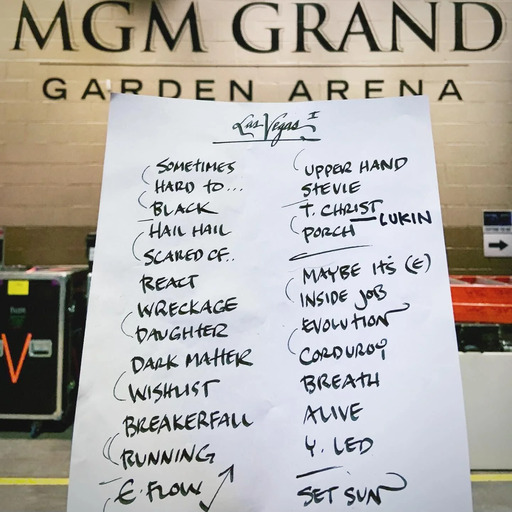 MGM GRAND
GARDEN ARENA
Las Vegas I
SOMETIMES
HARD TO...
BLACK
HAIL HAIL
SCARED OF..
REACT
WRECKAGE
DAUGHTER
DARK MATTER
WISHLIST
BREAKERFALL
RUNNING
E. FLOW
UPPER HAND
STEVIE
T. CHRIST
LUKIN
PORCH
MAYBE IT'S (E)
INSIDE JOB
EVOLUTION
CORDUROY
BREATH
ALIVE
Y. LED
SET SUN